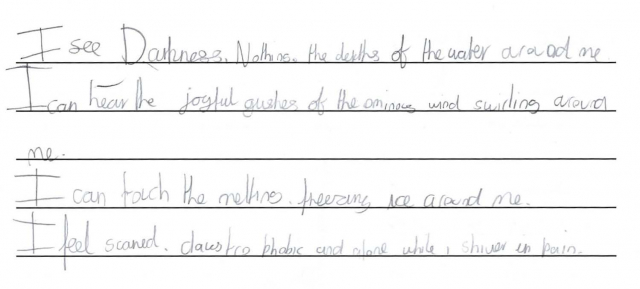 I see Darkness. Nothing. the depths of the water around me
I can hear the joyful gushes of the ominous wind swirling around
me.
I can touch the melting. freezing ice around me.
I feel scared. claustrophobic and alone while i shiver in pain.